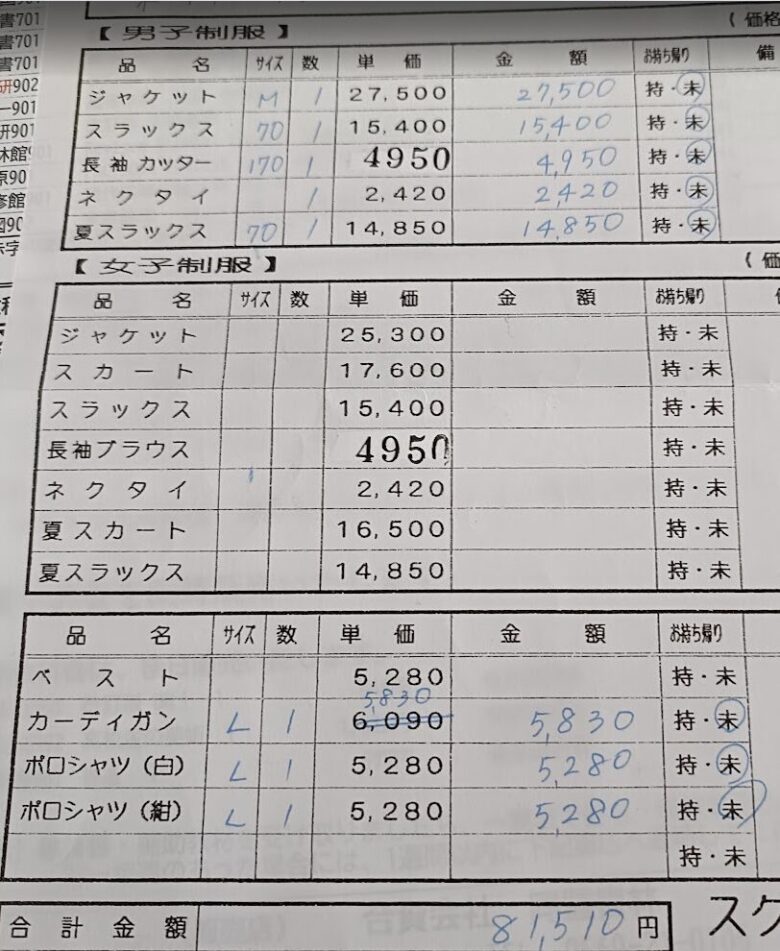 書701
書701
書701
研902
901
研901
【 男子制服 】 （価格
品 名 サイズ 数 単 価 金 額 お持ち帰り 備
ジャケット M 1 27,500 27,500 持・未
スラックス 70 1 15,400 15,400 持・未
長袖カッター 170 1 4950 4,950 持・未
ネクタイ 1 2,420 2,420 持・未
夏スラックス 70 1 14,850 14,850 持・未
【 女子制服 】 （価
品 名 サイズ 数 単 価 金 額 お持ち帰り
ジャケット 25,300 持・未
スカート 17,600 持・未
スラックス 15,400 持・未
長袖ブラウス 4950 持・未
ネクタイ 2,420 持・未
夏スカート 16,500 持・未
夏スラックス 14,850 持・未
品 名 サイズ 数 単 価 金 額 お持ち帰り
ベスト 5,280 持・未
5,830
カーディガン L 1 6,090 5,830 持・未
ポロシャツ（白） L 1 5,280 5,280 持・未
ポロシャツ（紺） L 1 5,280 5,280 持・未
持・未
合計金額 81,510円 スク